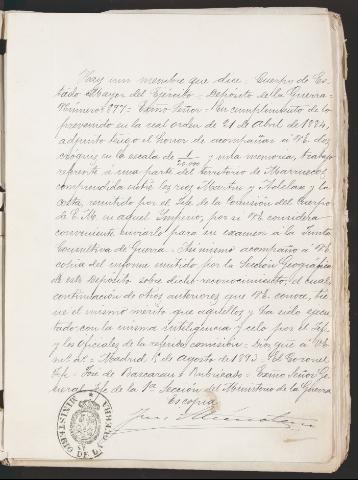 Hay un membrete que dice: Cuerpo de Es-
tado Mayor del Ejército = Depósito de la Guerra =
Número 877 = Excmo Señor = En cumplimiento de lo
prevenido en la real orden de 21 de Abril de 1884,
adjunto tengo el honor de acompañar á VE. dos
croquis en la escala de 1/20.000 y una memoria, trabajo
referente á una parte del territorio de Marruecos,
comprendida entre los rios Martin y Helelan y la
costa, remitido por el Jefe de la Comisión del Cuerpo
de E.M. en aquel Imperio, por si VE considera
conveniente enviarlo para su examen á la Junta
Consultiva de Guerra. Asi mismo acompaño á VE.
copia del informe emitido por la Sección Geográfica
de este Depósito sobre dicho reconocimiento, el cual
continuación de otros anteriores que VE. conoce, tie-
ne el mismo mérito que aquellos y ha sido ejecu-
tado con la misma inteligencia y celo por el Jefe
y los Oficiales de la referida comisión = Dios que á VE
m^s a^s = Madrid, 1º de Agosto de 1893 = El Coronel
Jefe = José de Bascaran = Rubricado = Excmo Señor Ge-
neral Jefe de la 1ª Sección del Ministerio de la Guerra
Es copia
MINISTERIO DE LA GUERRA